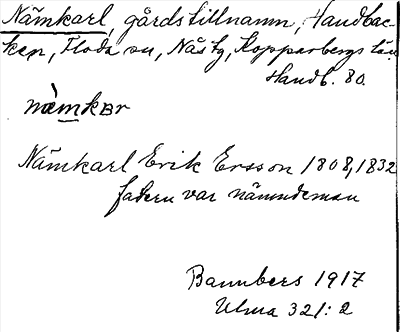 Nämkarl, gårdstillnamn, Handbac-
ken, Floda sn, Nås tg, Kopparbergs län
Handb. 80.
nämkar
Nämkarl Erik Ersson 1808, 1832
fadern var nämndeman
Bannbers 1917
Ulma 321: 2